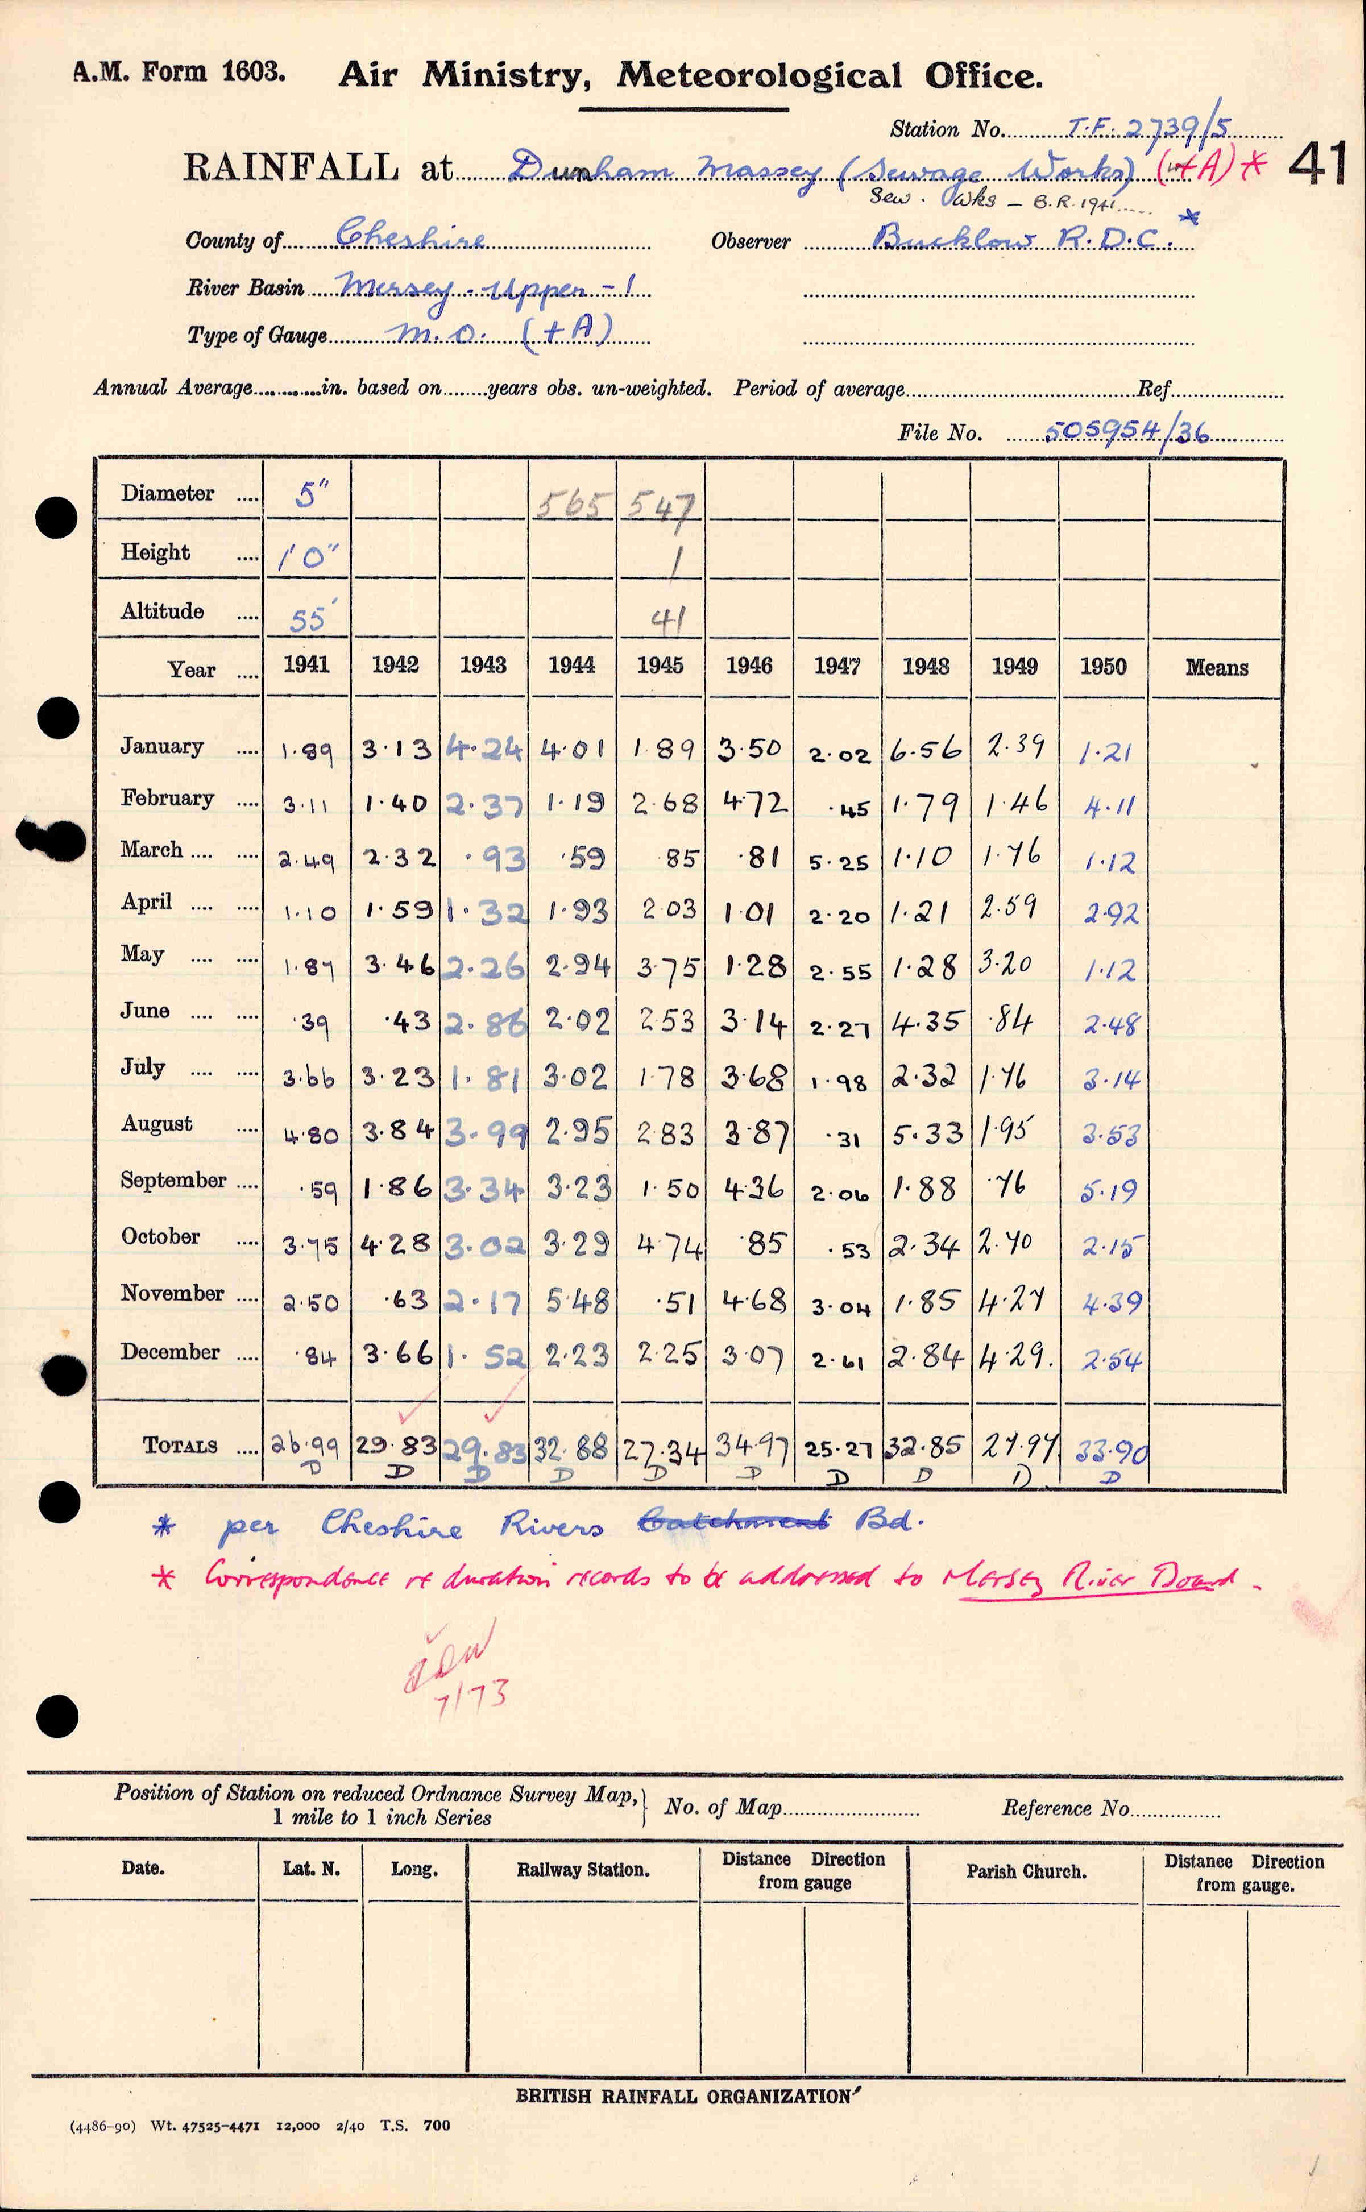 A.M. Form 1603. Air Ministry, Meteorological Office.
Station No. T.F. 2739/5
RAINFALL at Dunham Massey (Sewage Works) (+A) * 41
Sew. Wks – B.R. 1941
County of Cheshire Observer Bucklow R.D.C. *
River Basin Mersey - Upper - 1
Type of Gauge M.O. (+A)
Annual Average in. based on years obs. un-weighted. Period of average Ref.
File No. 505954/36
Diameter 5" 565 547
Height 1'0" 1
Altitude 55' 41
Year 1941 1942 1943 1944 1945 1946 1947 1948 1949 1950 Means
January 1.89 3.13 4.24 4.01 1.89 3.50 2.02 6.56 2.39 1.21
February 3.11 1.40 2.37 1.19 2.68 4.72 .45 1.79 1.46 4.11
March 2.49 2.32 .93 .59 .85 .81 5.25 1.10 1.76 1.12
April 1.10 1.59 1.32 1.93 2.03 1.01 2.20 1.21 2.59 2.92
May 1.87 3.46 2.26 2.94 3.75 1.28 2.55 1.28 3.20 1.12
June .39 .43 2.86 2.02 2.53 3.14 2.27 4.35 .84 2.48
July 3.66 3.23 1.81 3.02 1.78 3.68 1.98 2.32 1.76 3.14
August 4.80 3.84 3.99 2.95 2.83 3.87 .31 5.33 1.95 3.53
September .59 1.86 3.34 3.23 1.50 4.36 2.06 1.88 .76 5.19
October 3.75 4.28 3.02 3.29 4.74 .85 .53 2.34 2.70 2.15
November 2.50 .63 2.17 5.48 .51 4.68 3.04 1.85 4.27 4.39
December .84 3.66 1.52 2.23 2.25 3.07 2.61 2.84 4.29. 2.54
TOTALS 26.99 29.83 29.83 32.88 27.34 34.97 25.27 32.85 27.97 33.90
D D D D D D D D D D
* per Cheshire Rivers Catchment Bd.
* Correspondence re duration records to be addressed to Mersey River Board.
7/73
Position of Station on reduced Ordnance Survey Map, 1 mile to 1 inch Series No. of Map Reference No.
Date. Lat. N. Long. Railway Station. Distance Direction from gauge Parish Church. Distance Direction from gauge.
BRITISH RAINFALL ORGANIZATION
(4486-90) Wt. 47525-4471 12,000 2/40 T.S. 700